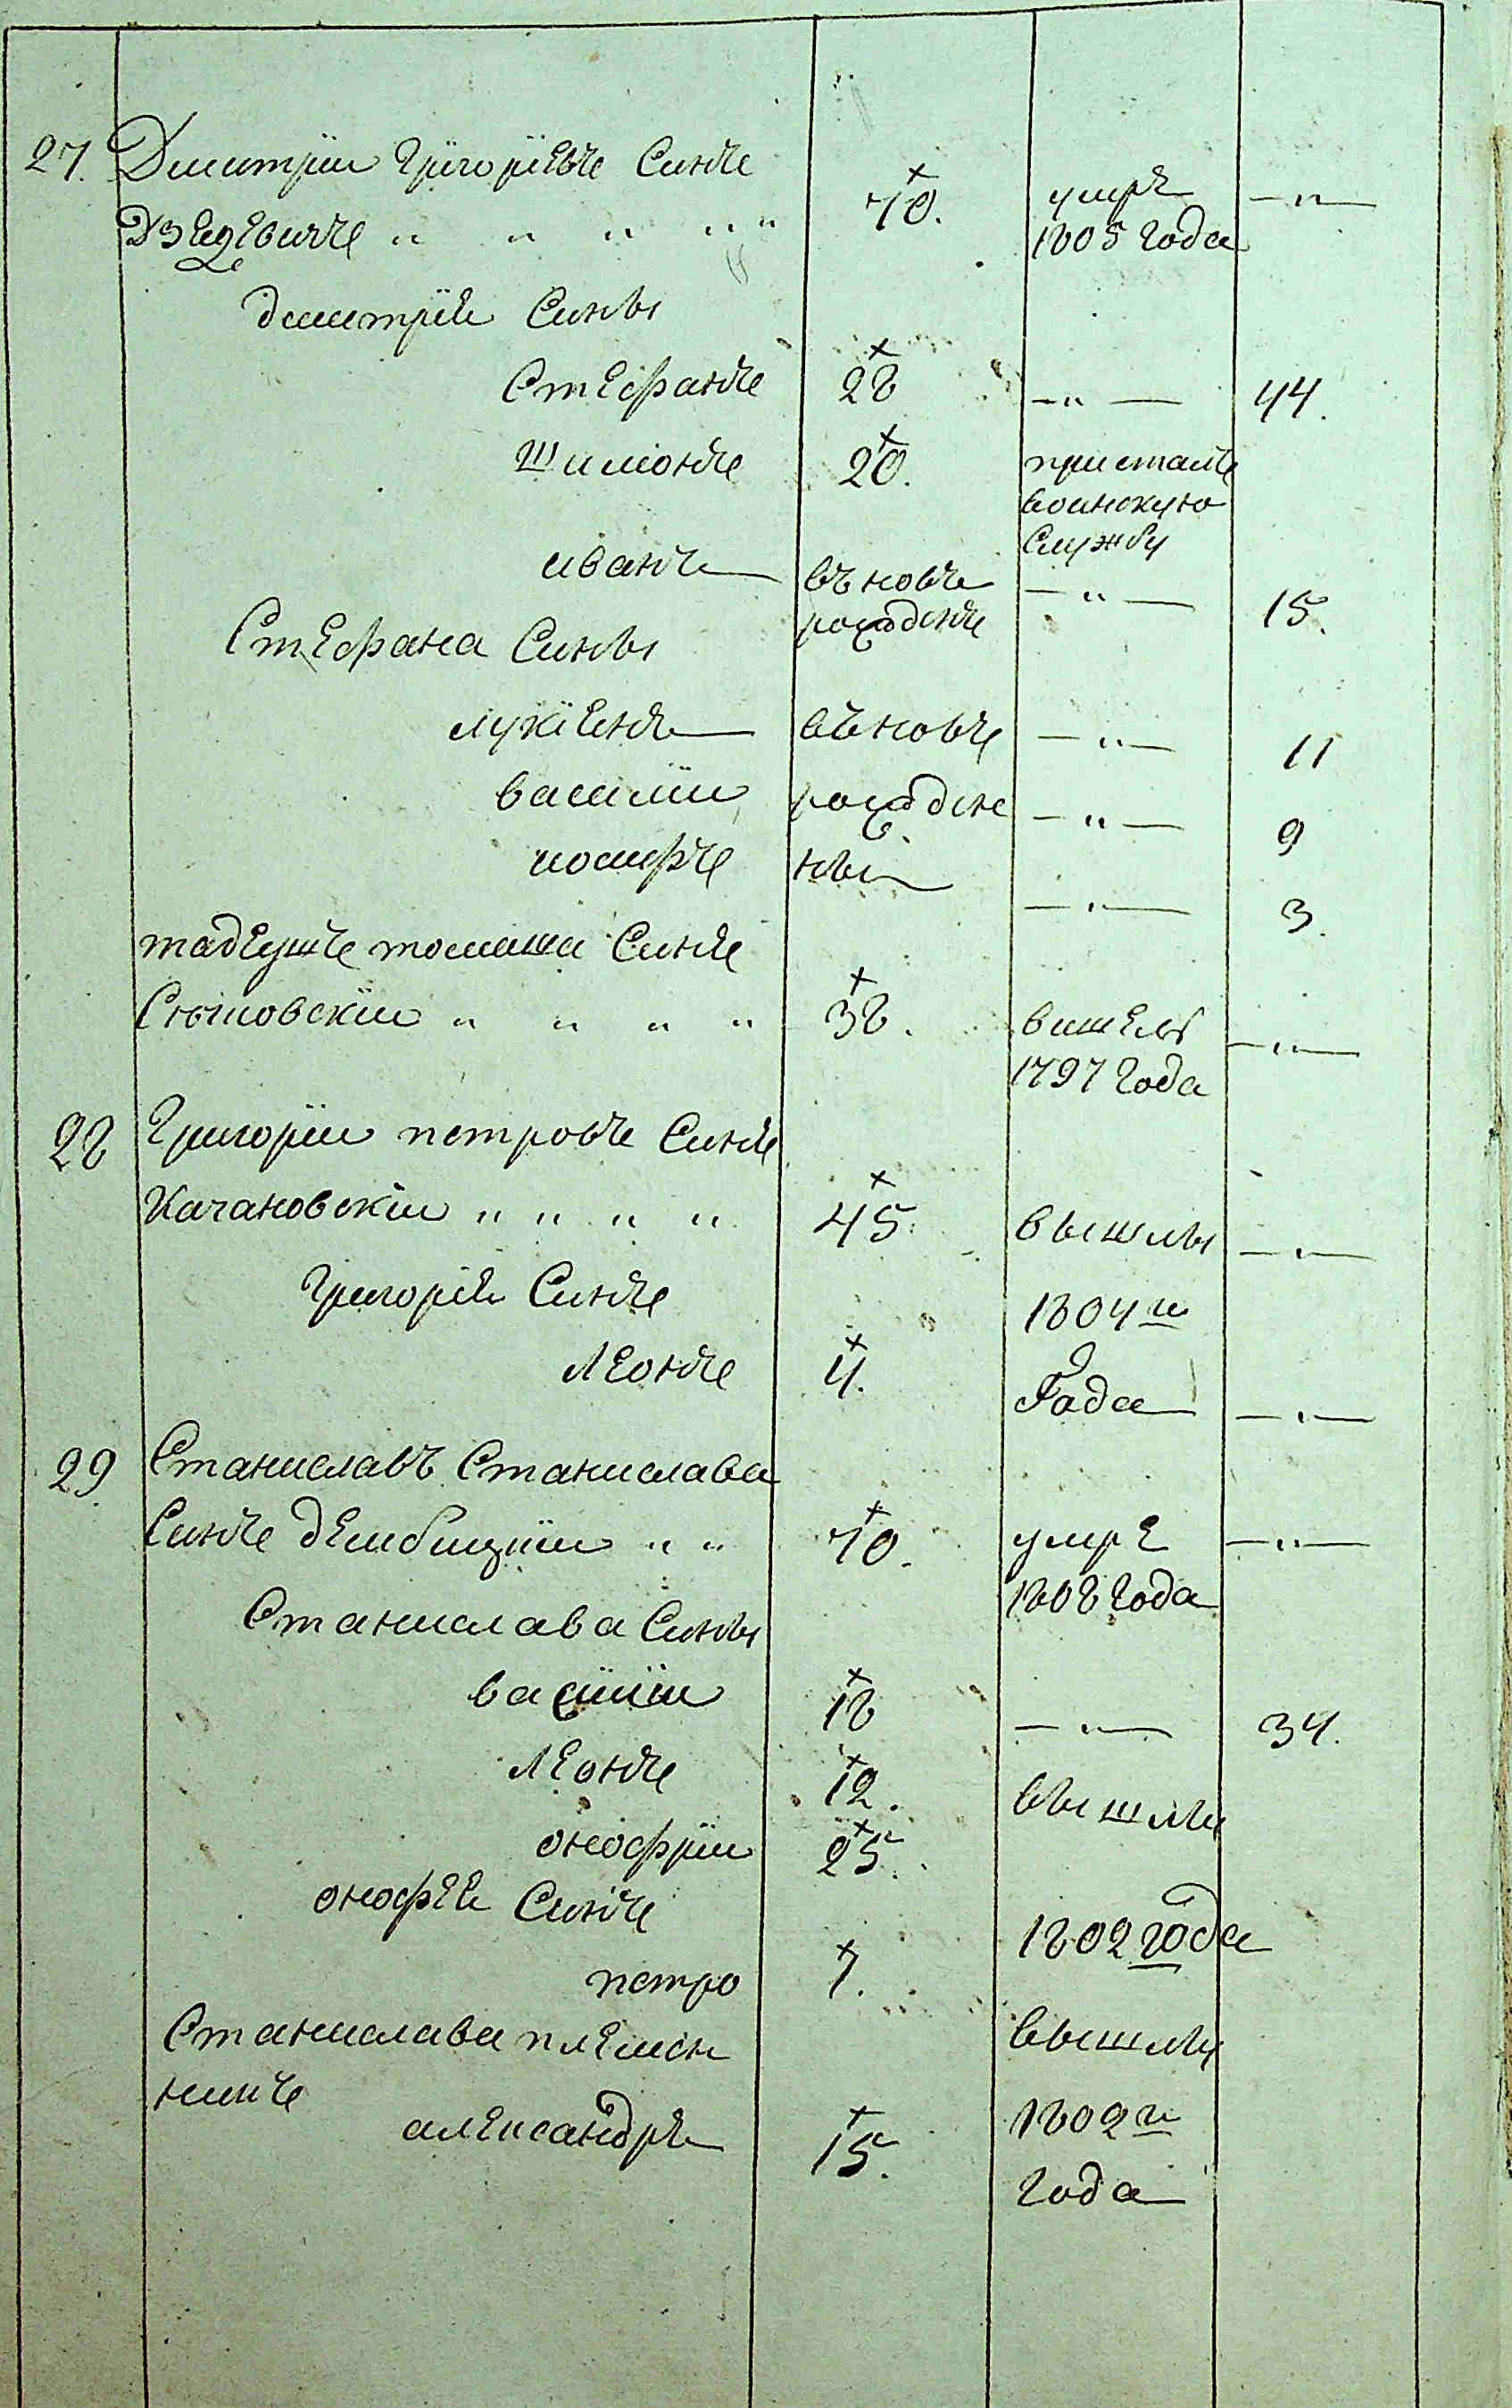 27. Дмитрїи Григорїевъ Синъ 70. умрѣ —"—
Дзедевичъ " " " " " 1805 Года
дмитрїя Сины
Стефанъ 28 —"— 44.
Шимонъ 20. присталъ
воинскую
Службу
иванъ въновъ —"— 15.
рожденъ
Стефана Сины
лукїянъ въновъ —"— 11
василїи рожден —"— 9
иосифъ ны —"— 3.
тадеушъ томаша Синъ
Сючиовскїи " " " " 38. вишелъ —"—
1797 Года
28 Григорїи петровъ Синъ
Качановскїи " " " " 45. вышлы —"—
Григорїя Синъ 1804 го
Леонъ 4. Года —"—
29 Станиславъ Станислава
Синъ дембицкїи " " 70. умре —"—
1808 Года
Станислава Сины
василїи 18 —"— 34.
Леонъ 12. вышлы
онофрїи 25.
онофрея Синъ 1802 года
петро 7.
Станислава племен вышлы
никъ 1802 го
александръ 15. Года